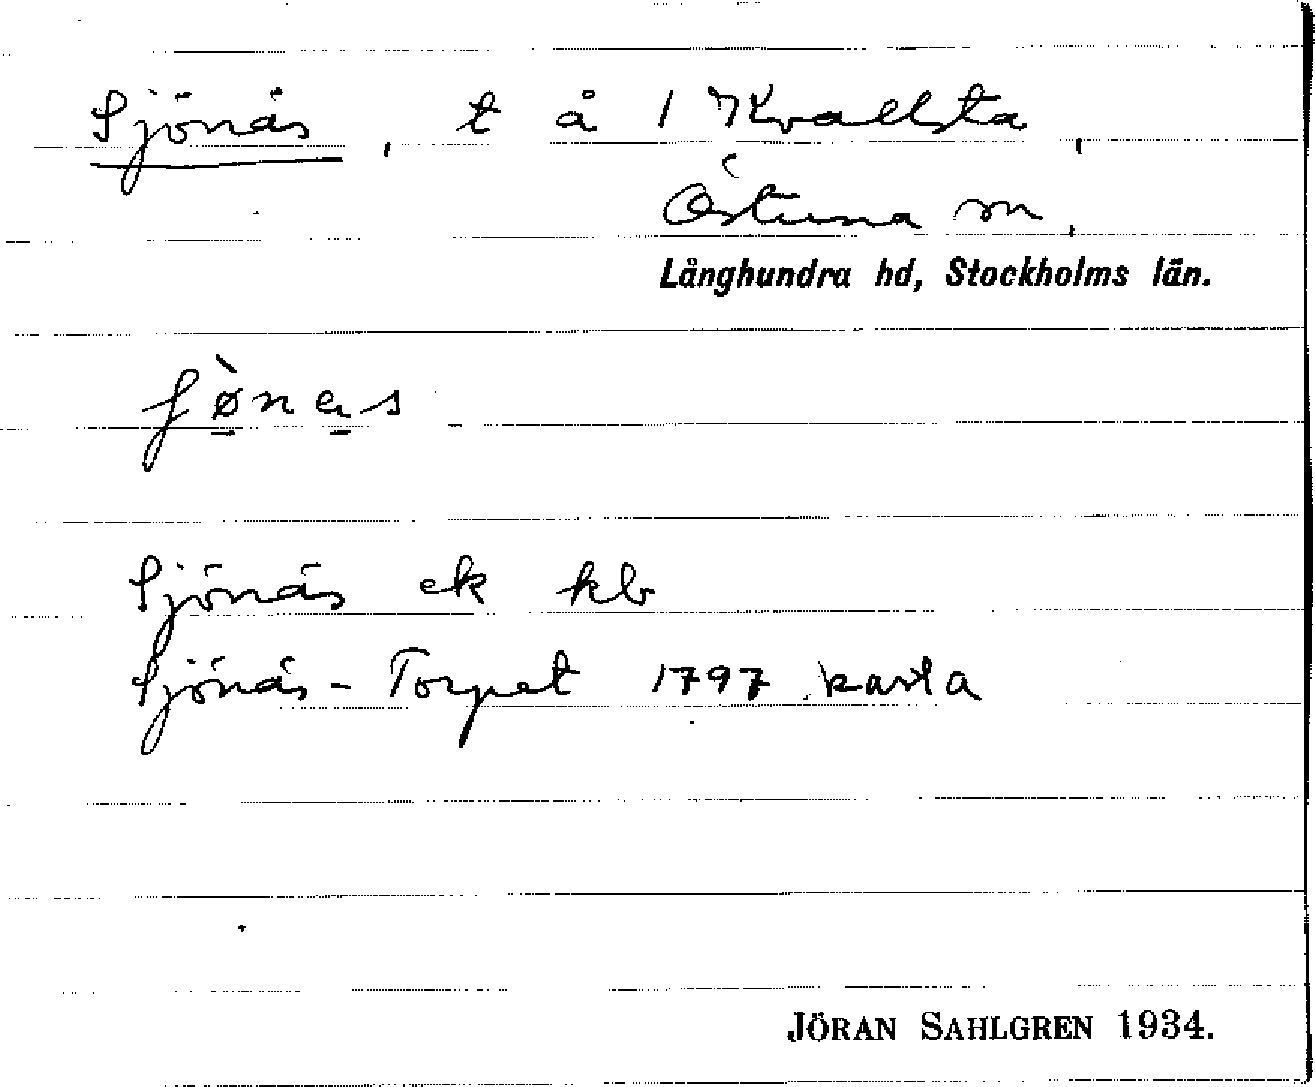 Sjönäs, t å 1 Kvallsta,
Östuna sn,
Långhundra hd, Stockholms län.
Sjönäs ek kb
Sjönäs-Torpet 1797 karta
JÖRAN SAHLGREN 1934.